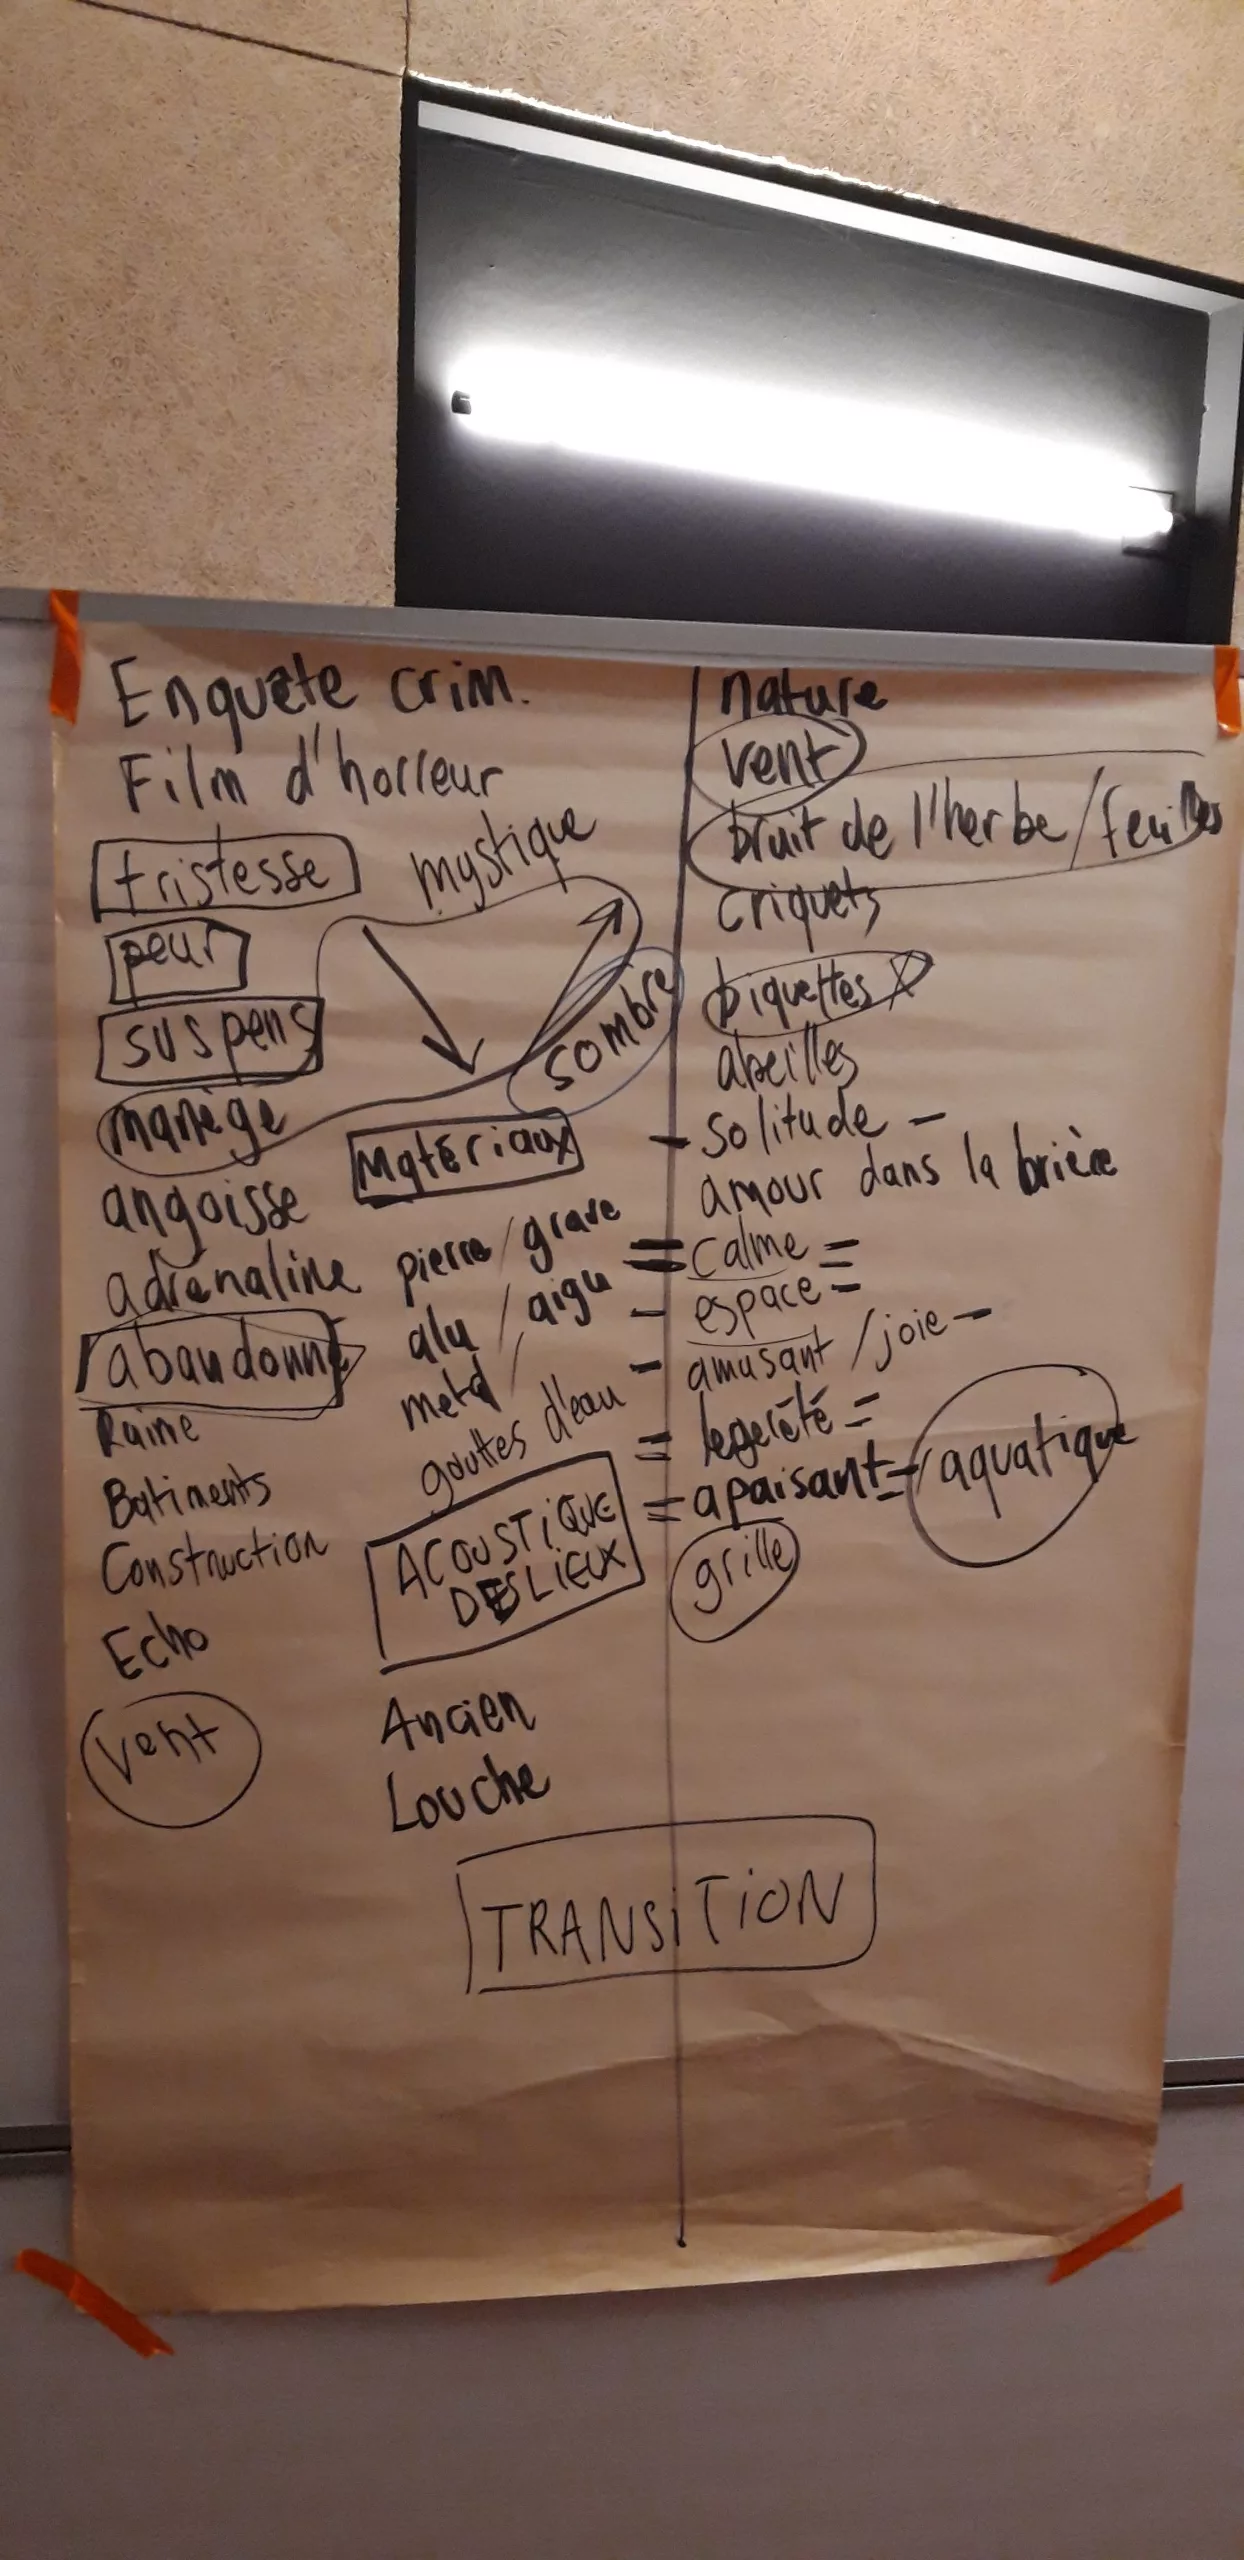 Enquête crim.
Film d'horreur
tristesse
mystique
peur
suspens
sombre
manège
Matériaux
angoisse
adrenaline
pierre / grave
alu / aigu
metal /
gouttes d'eau
abandonné
Ruine
Batiments
Construction
Echo
vent
ACOUSTIQUE
DES LIEUX
Ancien
Louche
nature
vent
bruit de l'herbe / feuilles
criquets
biquettes X
abeilles
- solitude -
amour dans la brière
= calme =
- espace =
- amusant / joie -
= legerété =
= apaisant = aquatique
grille
TRANSiTiON